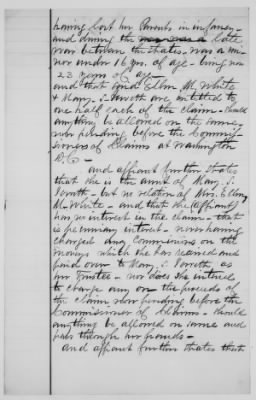 having lost her Parents in infancy -
and during the late
war between the States. was a mi-
nor under 16 yrs. of age - being now
23 years of age
and that said Ellen M. White
& Mary. S. are entitled to
one half each of the claim - should
anything be allowed on the same,
now pending before the Commis-
sioners of Claims at Washington
D.C. -
and affiant further states
that she is the aunt of Mary. S.
- but no relation of Mrs. Ellen
M. White - and that she (affiant)
has no interest in the claim - that
is pecuniary interest - never having
charged any Commissions on the
moneys which she has received and
paid over to Mary. S. as
her Trustee - nor does she intend
to charge any on the proceeds of
the claim now pending before the
Commissioner of Claims - should
anything be allowed on same and
pass through her hands -
and affiant further states that